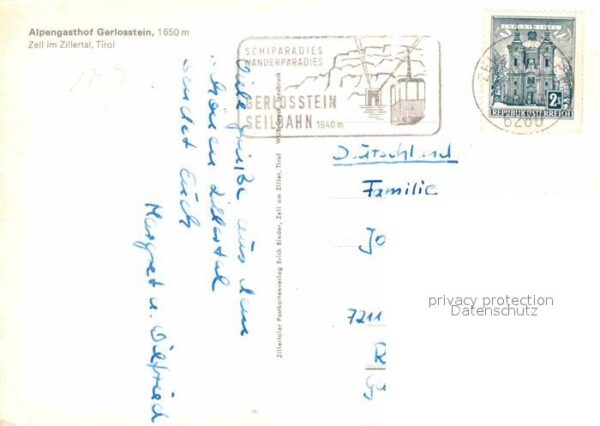 Alpengasthof Gerlosstein, 1650 m
Zell im Zillertal, Tirol
SCHIPARADIES
WANDERPARADIES
GERLOSSTEIN
SEILBAHN 1640 m
2S
REPUBLIK ÖSTERREICH
6280
Viele Grüße aus dem
schönen Zillertal
sendet Euch
Margret u. Wilfried
Zillertaler Postkartenverlag Erich Stadler, Zell am Ziller, Tirol
Deutschland
Familie
Jo
7211
R
Ga
privacy protection
Datenschutz